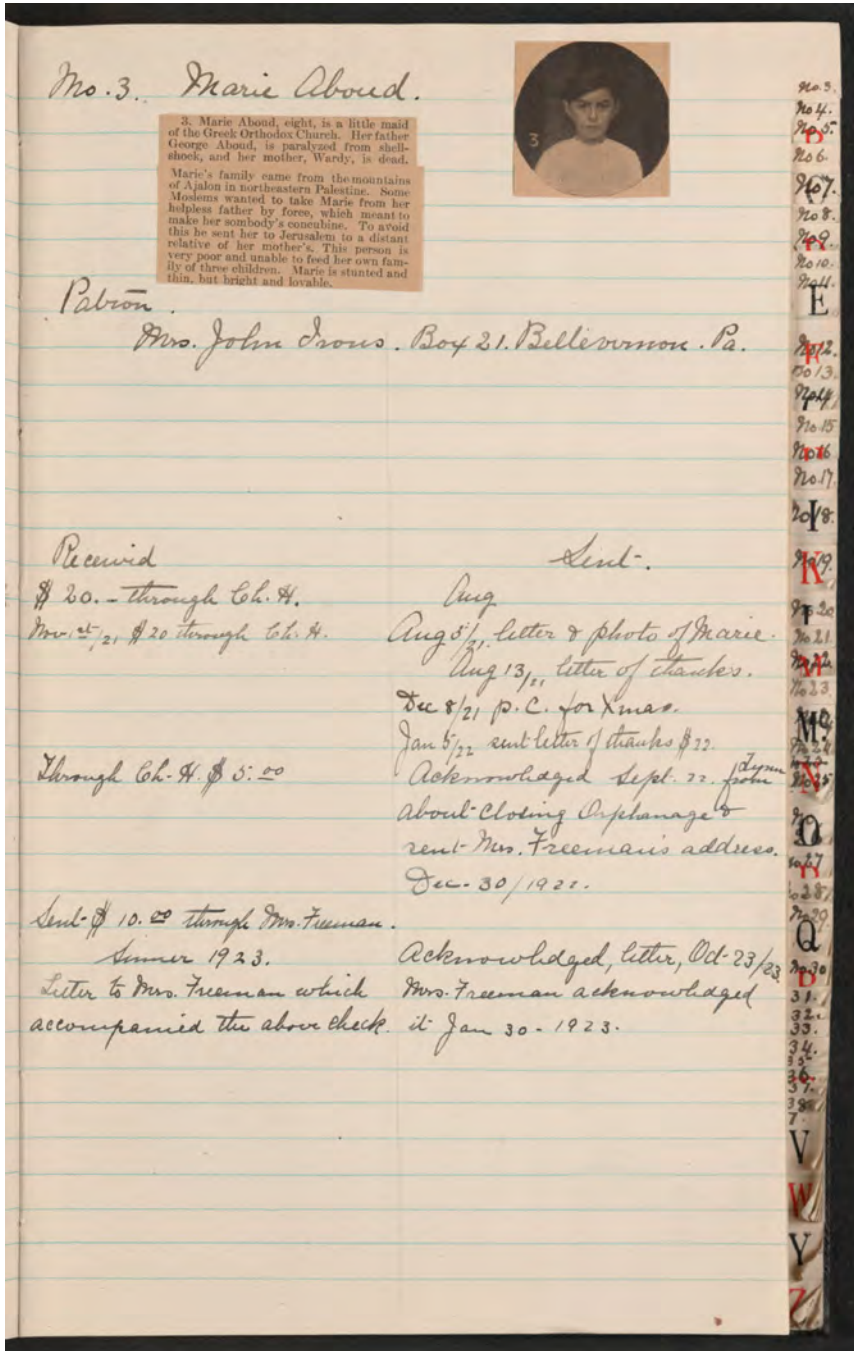 No. 3. Marie Aboud.
3. Marie Aboud, eight, is a little maid
of the Greek Orthodox Church. Her father
George Aboud, is paralyzed from shell-
shock, and her mother, Wardy, is dead.
Marie's family came from the mountains
of Ajalon in northeastern Palestine. Some
Moslems wanted to take Marie from her
helpless father by force, which meant to
make her sombody's concubine. To avoid
this he sent her to Jerusalem to a distant
relative of her mother's. This person is
very poor and unable to feed her own fam-
ily of three children. Marie is stunted and
thin, but bright and lovable.
3
Patron.
Mrs. John Irons. Box 21. Bellevernon. Pa.
Received
$ 20.- through Ch. H.
Nov. 1st/21 $20 through Ch. H.
Through Ch. H. $ 5.00
Sent $ 10.00 through Mrs. Freeman.
Summer 1923.
Letter to Mrs. Freeman which
accompanied the above check.
Sent.
Aug
Aug 5/21, letter & photo of Marie.
Aug 13/21, letter of thanks.
Dec 8/21 p.c. for Xmas.
Jan 5/22 sent letter of thanks $22.
Acknowledged Sept. 22. from
about closing Orphanage &
sent Mrs. Freeman's address.
Dec. 30/1922.
Acknowledged, letter, Oct 23/23
Mrs. Freeman acknowledged
it Jan 30 - 1923.
No 3.
No 4.
No 5.
No 6
No 7.
No 8.
No 9.
No 10.
No 11.
E
No 12.
No 13.
No 14
No 15
No 16
No 17.
I
No 18.
No 19.
K
No 20
No 21
No 22
M
No 23.
M
No 24
N
No 25
O
No 27
No 28
No 29
Q
No 30
31.
32.
33.
34.
35
36.
37.
38
V
W
Y
Z